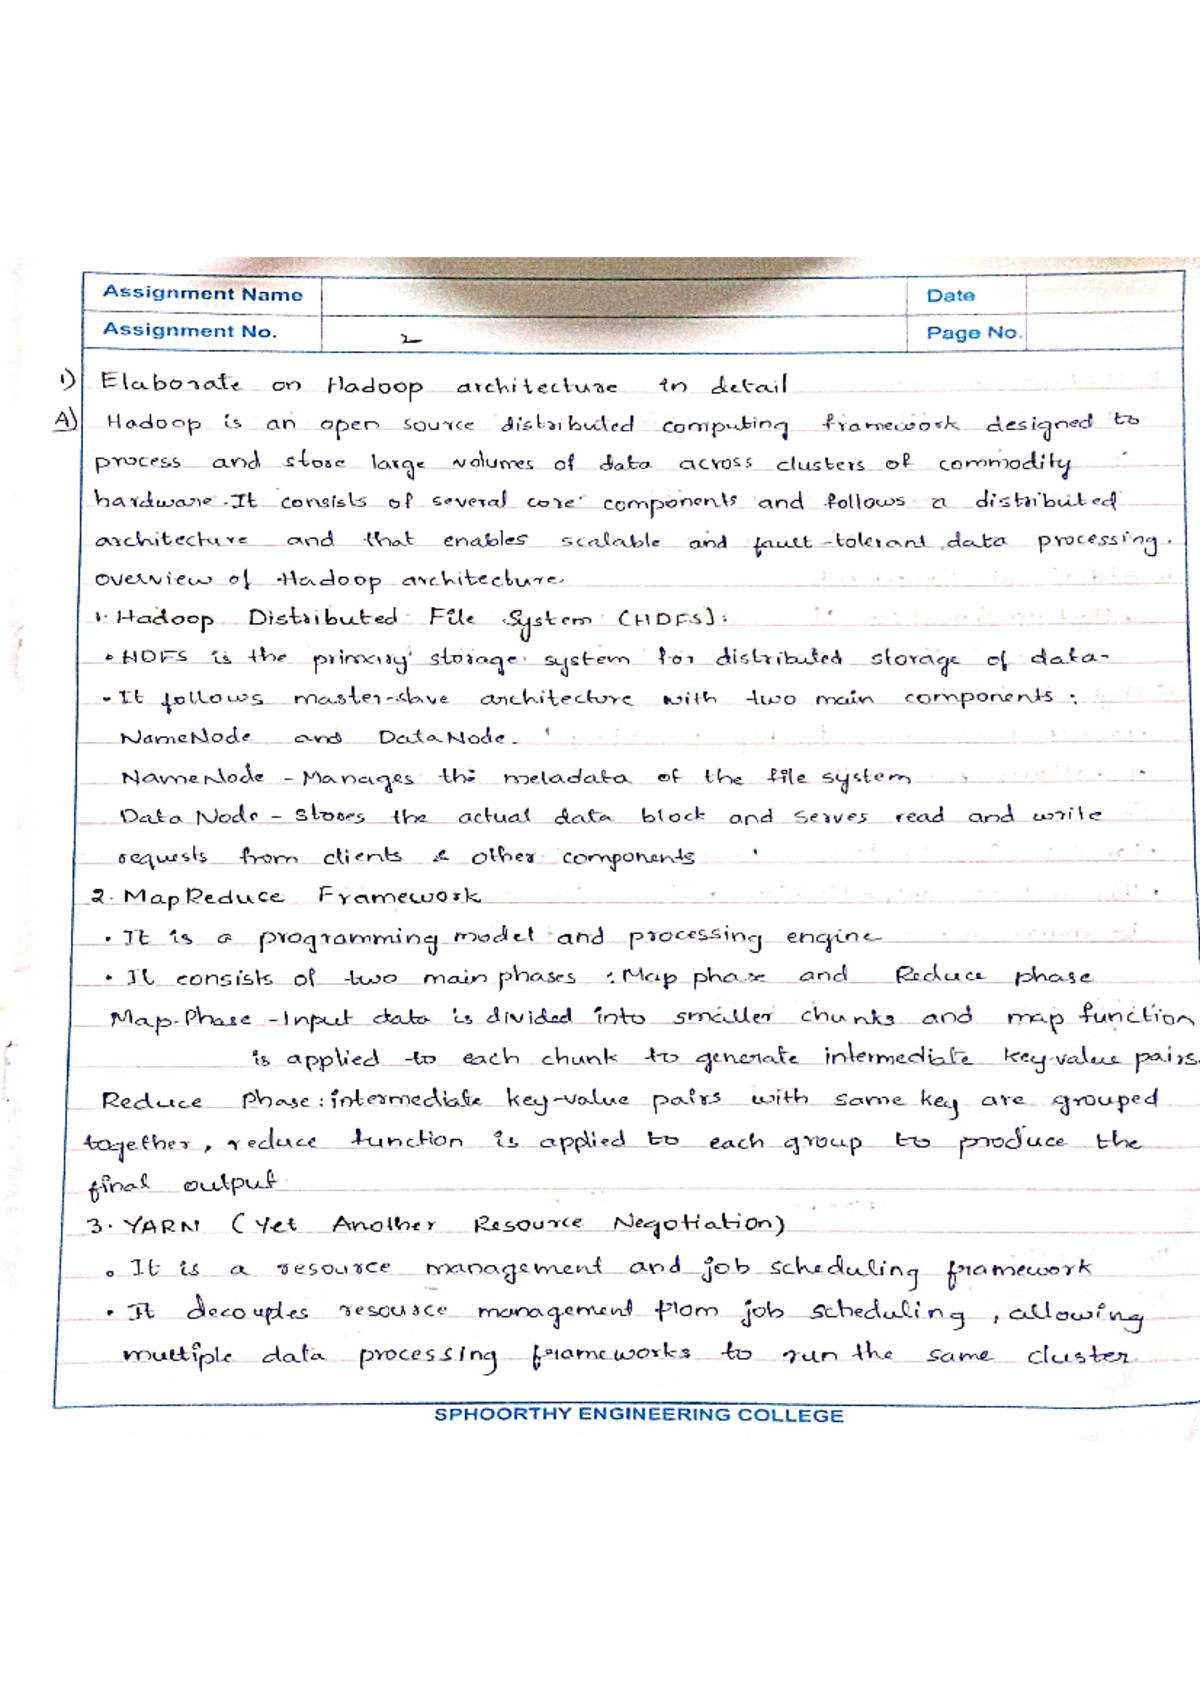 Assignment Name Date
Assignment No. 2 Page No.
1) Elaborate on Hadoop architecture in detail
A) Hadoop is an open source distributed computing framework designed to
process and store large volumes of data across clusters of commodity
hardware. It consists of several core components and follows a distributed
architecture and that enables scalable and fault-tolerant data processing.
overview of Hadoop architecture.
1. Hadoop Distributed File System (HDFS):
• HDFS is the primary storage system for distributed storage of data.
• It follows master-slave architecture with two main components:
NameNode and DataNode.
NameNode - Manages the metadata of the file system
Data Node - Stores the actual data block and serves read and write
requests from clients & other components
2. MapReduce Framework
• It is a programming model and processing engine
• It consists of two main phases : Map phase and Reduce phase
Map-Phase - Input data is divided into smaller chunks and map function
is applied to each chunk to generate intermediate key-value pairs.
Reduce Phase: intermediate key-value pairs with same key are grouped
together, reduce function is applied to each group to produce the
final output
3. YARN (Yet Another Resource Negotiation)
• It is a resource management and job scheduling framework
• It decouples resource management from job scheduling, allowing
multiple data processing frameworks to run the same cluster
SPHOORTHY ENGINEERING COLLEGE